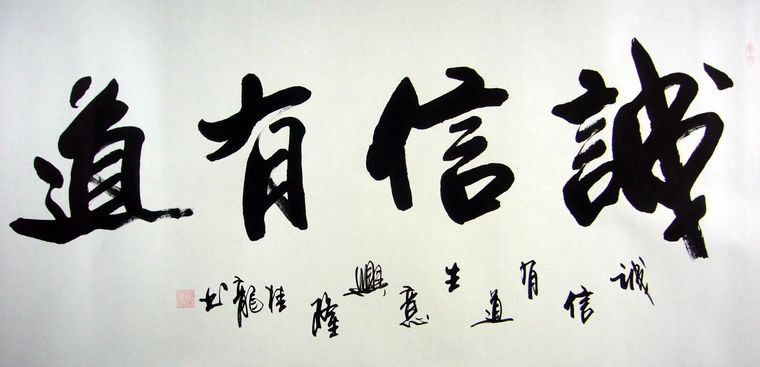 誠信有道
誠信有道生意興隆 桂龍书